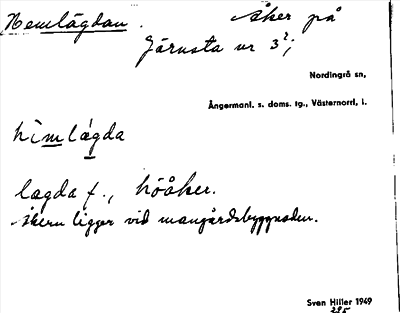 Hemlägdan. åker på
Järnsta nr 3²;
Nordingrå sn,
Ångermanl. s. doms. tg., Västernorrl. l.
hìmlǻgda
lägda f., höåker.
åkern ligger vid mangårdsbyggnaden.
Sven Hiller 1949
285